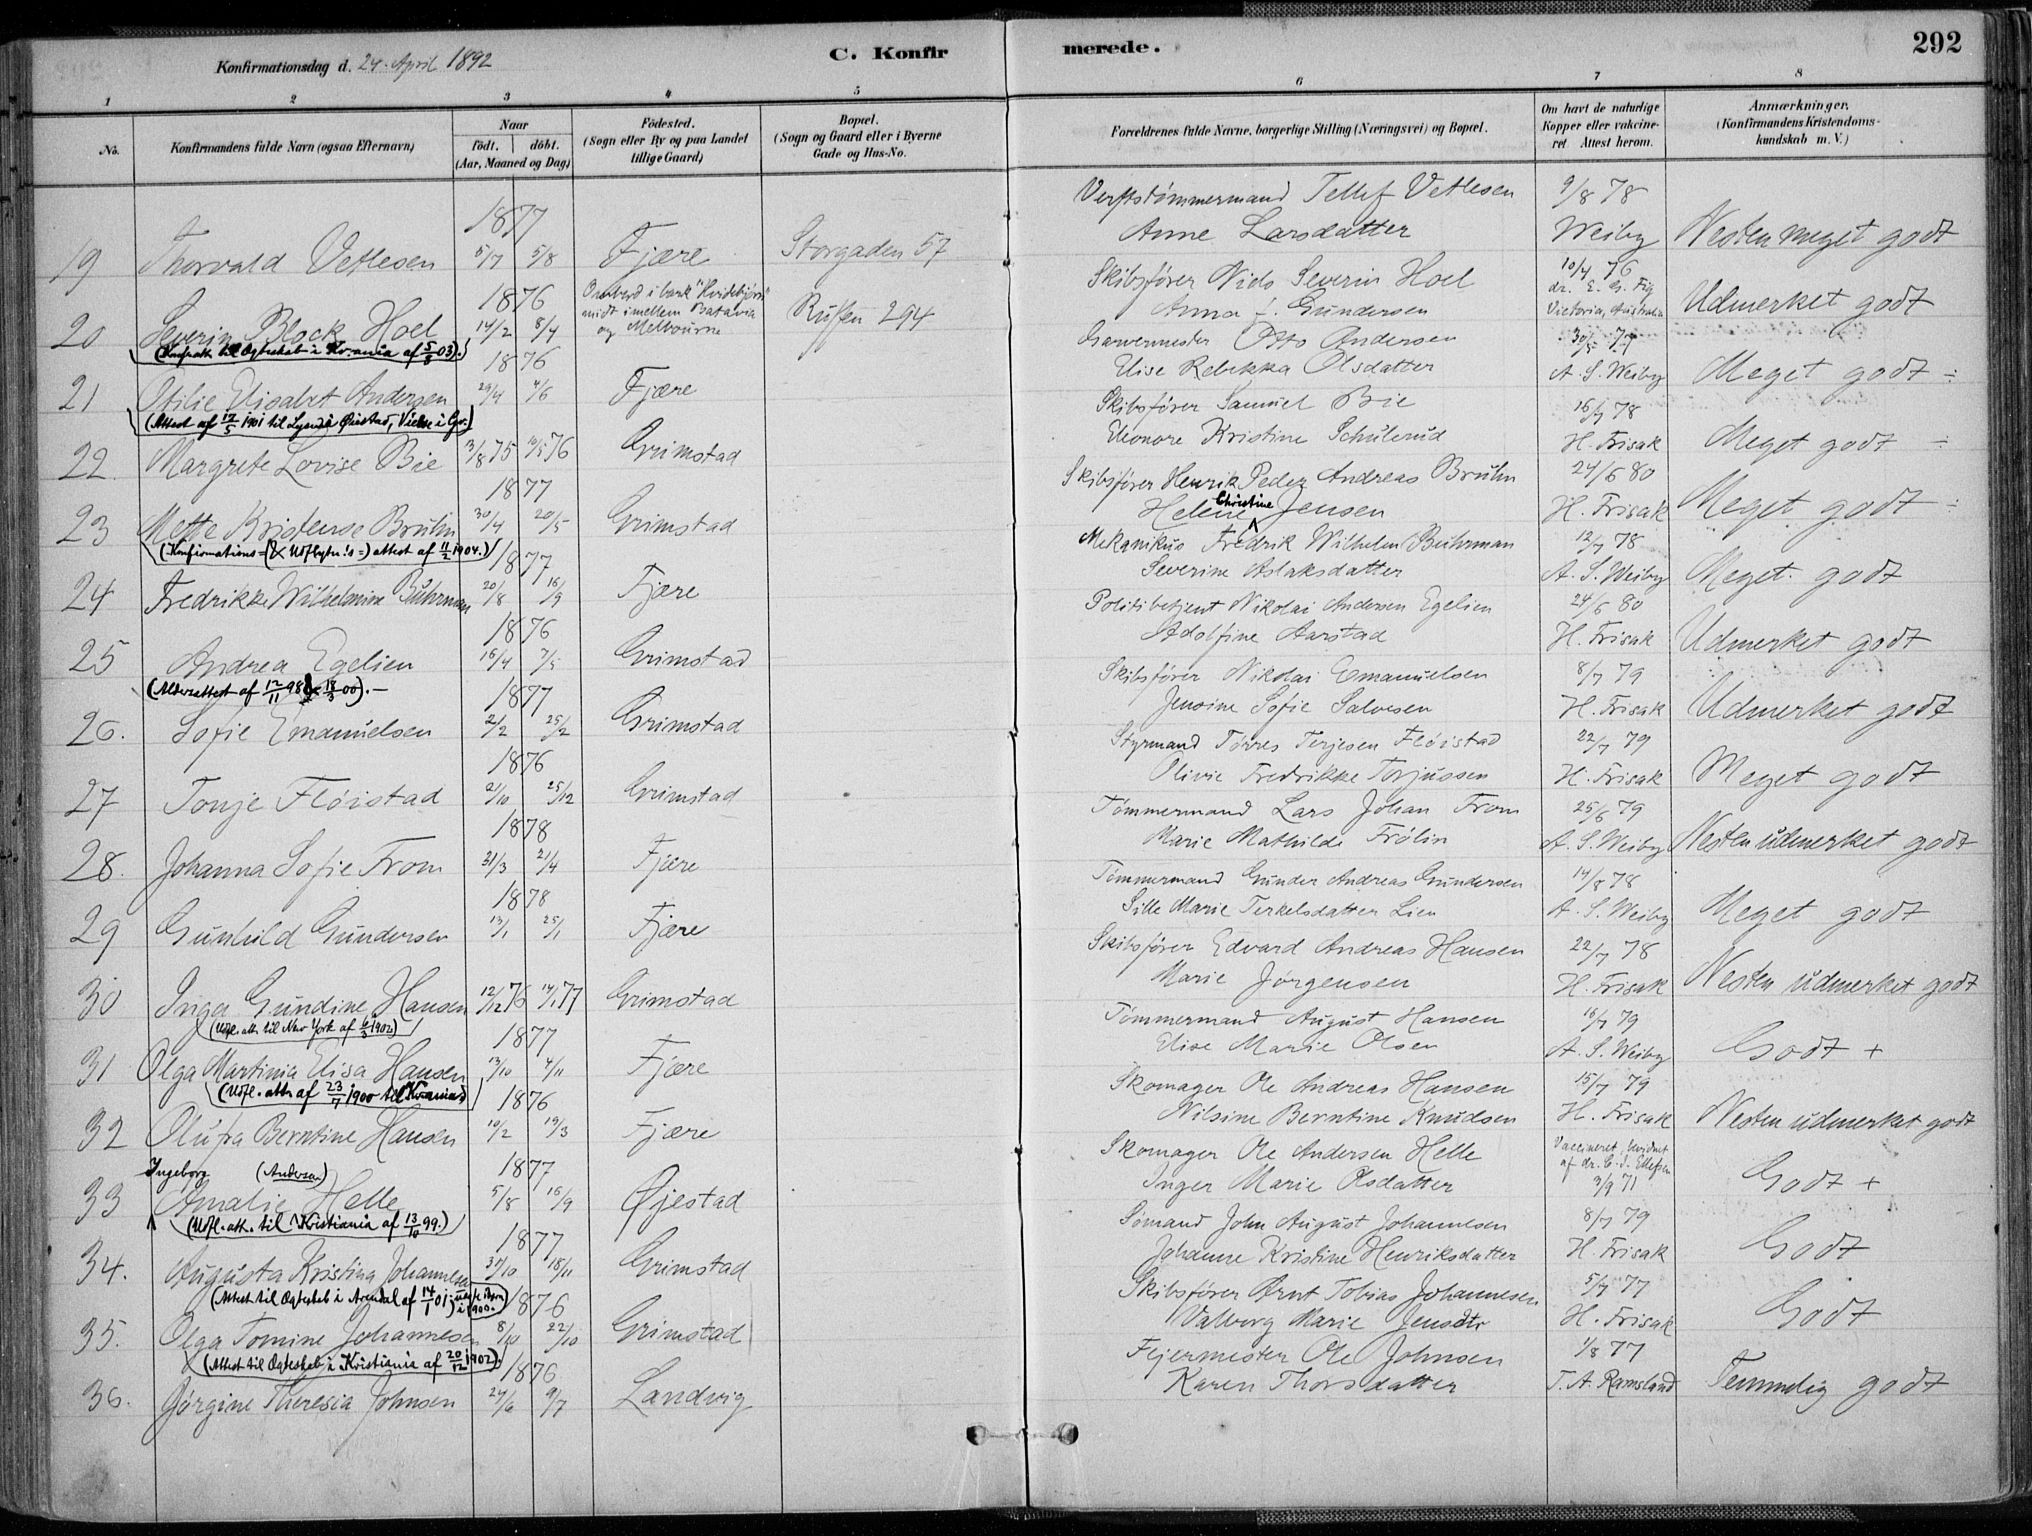 Konfirmationsdag d. 24. April 1892
C. Konfirmerede.
292
1 2 3 4 5 6 7 8
No.
Konfirmandens fulde Navn (ogsaa Efternavn)
Naar
födt. döbt.
(Aar, Maaned og Dag)
Födested.
(Sogn eller By og paa Landet
tillige Gaard)
Bopæl.
(Sogn og Gaard eller i Byerne
Gade og Hus-No.
Forældrenes fulde Navne, borgerlige Stilling (Næringsvei) og Bopæl.
Om havt de naturlige
Kopper eller vakcine-
ret Attest herom.
Anmærkninger.
(Konfirmandens Kristendoms-
kundskab m. V.)
1877
Verftstømmermand Tellef Vetlesen 9/8 78
19 Thorvald Vetlesen 5/7 5/8 Fjære Storgaden 57 Anne Larsdatter Weiby Nesten meget godt
1876 Omberd i bark "Hvidebjørn"
midt imellem Batavia
og Melbourne
Skibsfører Nids Severin Hoel 10/4 76
dr. E. G. Fig
20 Severin Block Hoel 14/2 8/4 Ruffen 294 Anna f. Gundersen Victoria, Australia Udmerket godt
(Konf.att. til Ægteskab i Kr.ania af 5/3 03).
1876
Garvermester Otto Andersen 30/5 77
21 Otilie Elisabet Andersen 29/4 4/6 Fjære Elise Rebekka Olsdatter A. S. Weiby Meget godt ÷
(Attest af 12/5 1901 til Lysn. i Øiestad, Vielse i Gr.)
Skibsfører Samuel Bie 16/7 78
22. Margrete Lovise Bie 3/8 75 13/5 76 Grimstad Eleonore Kristine Schulerud H. Frisak Meget godt ÷
1877
Skibsfører Henrik Peder Andreas Bruhn 24/6 80
Christine
23 Mette Kristense Bruhn 30/4 20/5 Grimstad Helene Jensen H. Frisak Meget godt ÷
(Konfirmations= (& Udflytn!s=) attest af 11/2 1904.)
1877
Mekanikus Fredrik Wilhelm Buhrman 12/7 78
24 Fredrikke Wilhelmine Buhrman 20/8 16/9 Fjære Severine Aslaksdatter A. S. Weiby Meget godt
1876
Politibetjent Nikolai Andersen Egelien 24/6 80
25 Andrea Egelien 16/4 7/5 Grimstad Adolfine Aarstad H. Frisak Udmerket godt
(Aldersattest af 12/11 98 & 18/3 00).—
1877
Skibsfører Nikolai Emanuelsen 8/7 79
26. Sofie Emanuelsen 2/2 25/2 Grimstad Jensine Sofie Salvesen H. Frisak Udmerket godt
1876
Styrmand Tørres Terjesen Fløistad 22/7 79
27 Tonje Fløistad 21/10 25/12 Grimstad Olivie Fredrikke Torjussen H. Frisak Meget godt
1878
Tømmermand Lars Johan From 25/6 79
28. Johanna Sofie From 31/3 21/4 Fjære Marie Mathilde Frölin A. S. Weiby Nesten udmerket godt
1878
Tømmermand Gunder Andreas Gundersen 14/8 78
29 Gunhild Gundersen 13/1 25/1 Fjære Sille Marie Terkelsdatter Lien A. S. Weiby Meget godt
Skibsfører Edvard Andreas Hansen 22/7 78
30 Inga Gundine Hansen 12/12 76 14/1 77 Grimstad Marie Jørgensen H. Frisak Nesten udmerket godt
(Udfl. att. til New York af 6/3 1902)
1877
Tømmermand August Hansen 16/7 79
31 Olga Martinia Elisa Hansen 13/10 4/11 Fjære Elise Marie Olsen A. S. Weiby Godt +
(Udfl. att. af 23/7 1900 til Kr.ania)
1876
Skomager Ole Andreas Hansen 15/7 79
32 Olufa Berntine Hansen 10/2 19/3 Fjære Nilsine Berntine Knudsen H. Frisak Nesten udmerket godt
1877
Ingeborg (Andersen)
Skomager Ole Andersen Helle Vaccineret, bevidnet
af dr. C. J. Ellefsen
33 Amalie Helle 5/8 16/9 Øjestad Inger Marie Olsdatter 3/9 71 Godt +
(Udfl. att. til Kristiania af 13/10 99.)
1877
Sømand John August Johannesen 8/7 79
34. Augusta Kristina Johannesen 31/10 18/11 Grimstad Johanne Kristine Henriksdatter H. Frisak Godt
(Attest til Ægteskab i Arendal af 14/1 01; uægte Barn i 1900.)
1876
Skibsfører Ørnt Tobias Johannesen 5/7 77
35. Olga Tomine Johannesen 8/10 22/10 Grimstad Valborg Marie Jensdtr H. Frisak Godt
(Attest til Ægteskab i Kristiania af 20/12 1902).
1876
Fejermester Ole Johnsen 1/8 77
36. Jørgine Theresia Johnsen 24/6 9/7 Landvig Karen Thorsdatter T. A. Ramsland Temmelig godt